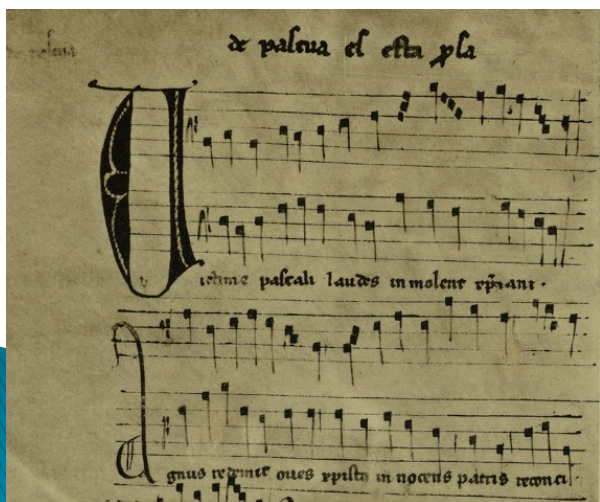 de pascua el esta ꝓsa
Victime pascali laudes inmolent xp̄iani ·
Agnus redemit oues xpistꝰ innocens patris reconci